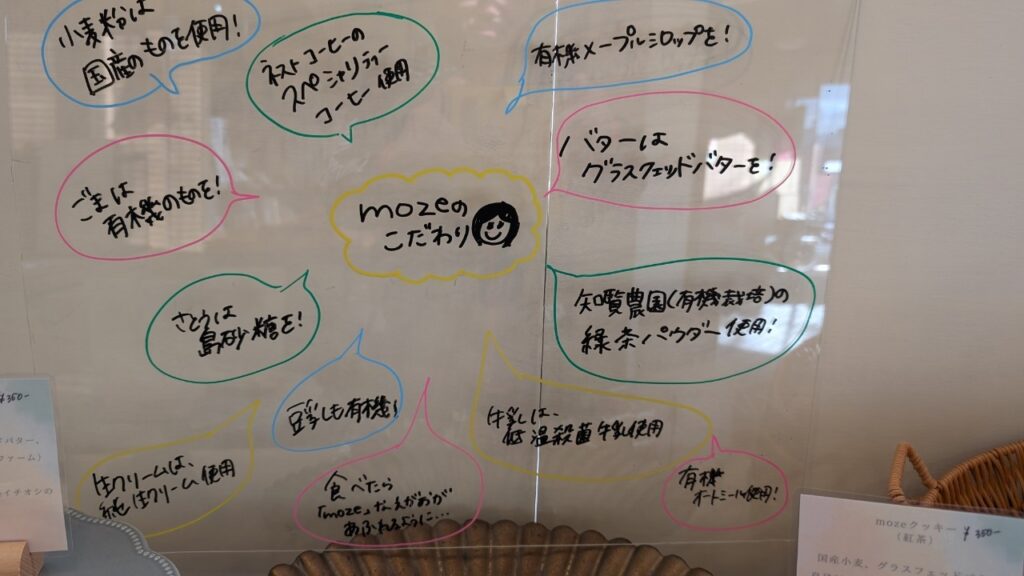 小麦粉は
国産のものを使用!
ネストコーヒーの
スペシャリティ
コーヒー使用
有機メープルシロップを!
ごまは
有機のものを!
mozeの
こだわり
バターは
グラスフェッドバターを!
さとうは
島砂糖を!
知覧農園(有機栽培)の
緑茶パウダー使用!
豆乳も有機!
牛乳は、
低温殺菌牛乳使用
生クリームは、
純生クリーム使用
食べたら
「moze」なえがおが
あふれるように…
有機
オートミール使用!
¥350-
バター、
ファーム)
イチオシの
mozeクッキー ¥350-
(紅茶)
国産小麦、グラスフェッド